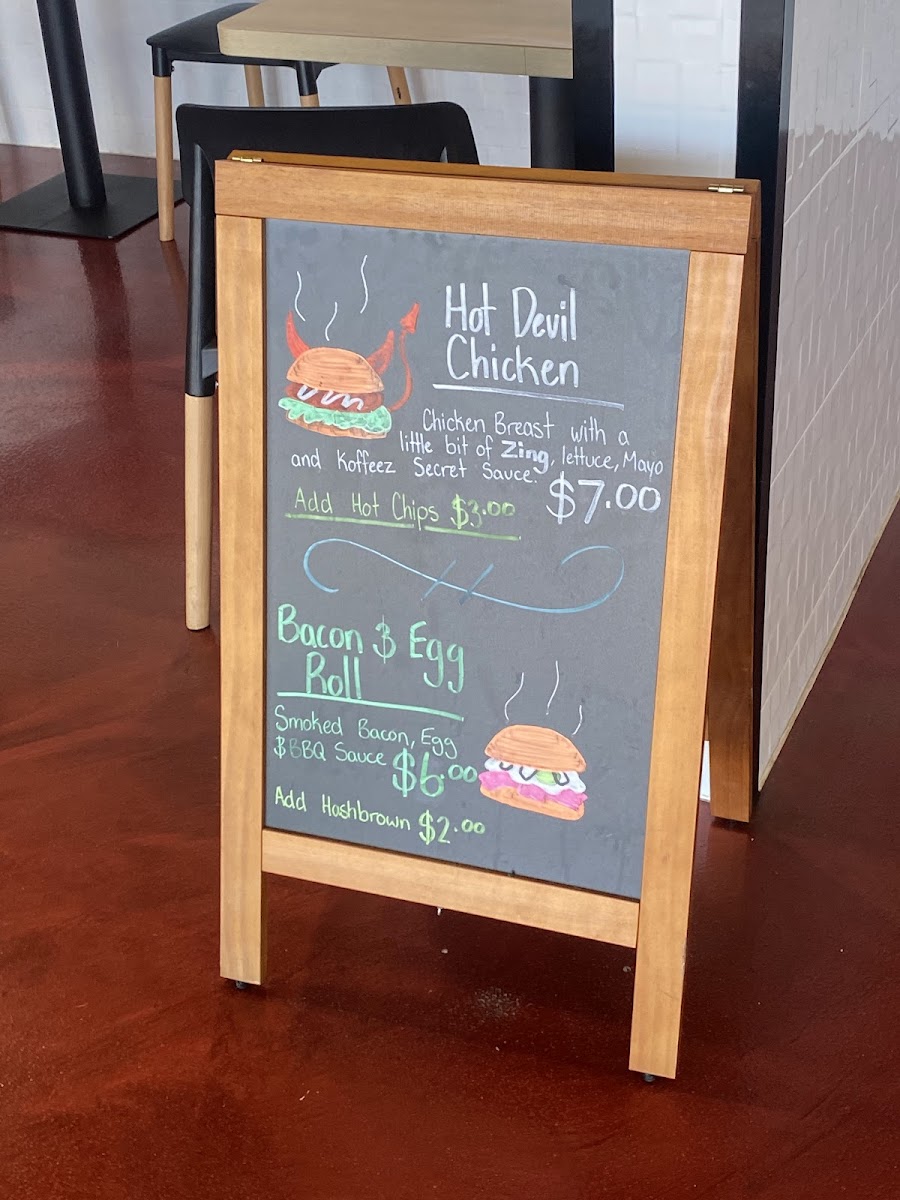 Hot Devil
Chicken
Chicken Breast with a
little bit of Zing, lettuce, Mayo
and Koffeez Secret Sauce.
$7.00
Add Hot Chips $3.00
Bacon & Egg
Roll
Smoked Bacon, Egg
& BBQ Sauce $6.00
Add Hashbrown $2.00